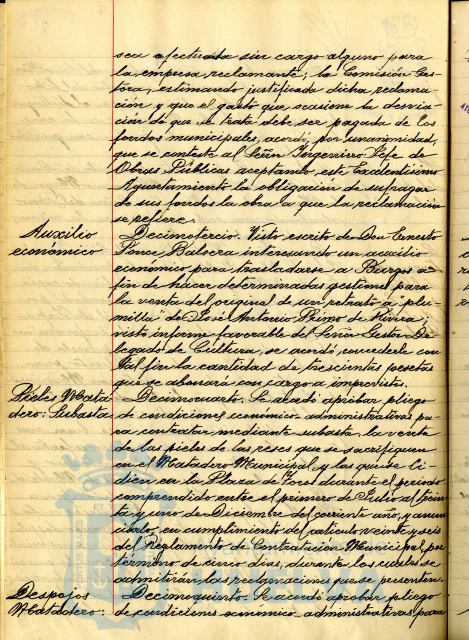 sea efectuada sin cargo alguno para
la empresa reclamante; la Comisión Ges-
tora, estimando justificada dicha reclama-
ción y que el gasto que ocasione la desvia-
ción de que se trata debe ser pagada de los
fondos municipales, acordó, por unanimidad,
que se conteste al Señor Ingeniero Jefe de
Obras Públicas aceptando este Excelentísimo
Ayuntamiento la obligación de sufragar
de sus fondos la obra a que la reclamación
se refiere.
Auxilio
económico
Decimotercio. Visto escrito de Don Ernesto
Ponce Balsera interesando un auxilio
económico para trasladarse a Burgos a
fin de hacer determinadas gestiones para
la venta del original de un retrato a "plu-
milla" de José Antonio Primo de Rivera;
visto informe favorable del Señor Gestor De-
legado de Cultura, se acordó concederle con
tal fin la cantidad de trescientas pesetas
que se abonará con cargo a imprevistos.
Pieles Mata
dero: Subasta
Decimocuarto. Se acordó aprobar pliego
de condiciones económico-administrativas pa-
ra contratar mediante subasta, la venta
de las pieles de las reses que se sacrifiquen
en el Matadero Municipal y las que se li-
dien en la Plaza de Toros durante el período
comprendido entre el primero de Julio al trein-
ta y uno de Diciembre del corriente año, y anun-
ciarlo, en cumplimiento del artículo veinte y seis
del Reglamento de Contratación Municipal, por
término de cinco días, durante los cuales se
admitirán las reclamaciones que se presenten.
Despojos
Matadero:
Decimoquinto. Se acordó aprobar pliego
de condiciones económico-administrativas para